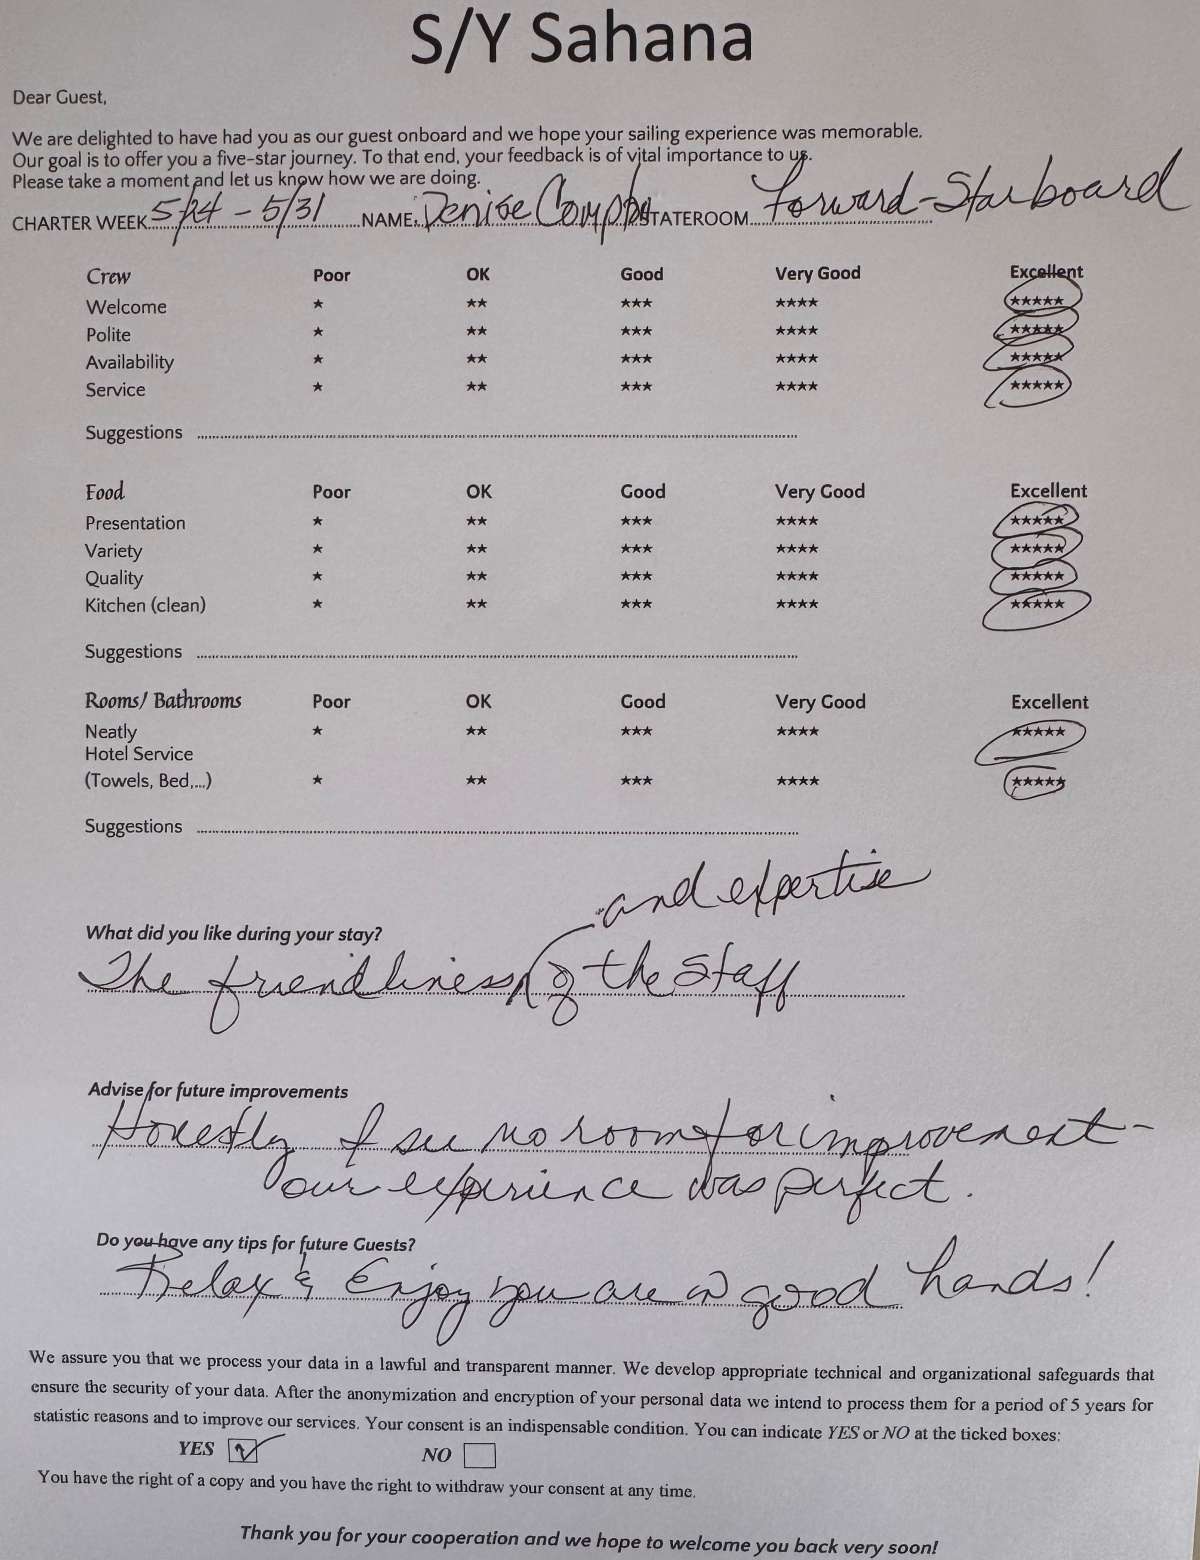 S/Y Sahana
Dear Guest,
We are delighted to have had you as our guest onboard and we hope your sailing experience was memorable.
Our goal is to offer you a five-star journey. To that end, your feedback is of vital importance to us.
Please take a moment and let us know how we are doing.
CHARTER WEEK 5/24 - 5/31 NAME: Denise STATEROOM Forward-Starboard
Crew Poor OK Good Very Good Excellent
Welcome ★ ★★ ★★★ ★★★★ ★★★★★
Polite ★ ★★ ★★★ ★★★★ ★★★★★
Availability ★ ★★ ★★★ ★★★★ ★★★★★
Service ★ ★★ ★★★ ★★★★ ★★★★★
Suggestions
Food Poor OK Good Very Good Excellent
Presentation ★ ★★ ★★★ ★★★★ ★★★★★
Variety ★ ★★ ★★★ ★★★★ ★★★★★
Quality ★ ★★ ★★★ ★★★★ ★★★★★
Kitchen (clean) ★ ★★ ★★★ ★★★★ ★★★★★
Suggestions
Rooms/ Bathrooms Poor OK Good Very Good Excellent
Neatly ★ ★★ ★★★ ★★★★ ★★★★★
Hotel Service
(Towels, Bed,...) ★ ★★ ★★★ ★★★★ ★★★★★
Suggestions
and expertise
What did you like during your stay?
The friendliness of the Staff
Advise for future improvements
Honestly I see no room for improvement -
our experience was perfect.
Do you have any tips for future Guests?
Relax & Enjoy you are in good hands!
We assure you that we process your data in a lawful and transparent manner. We develop appropriate technical and organizational safeguards that
ensure the security of your data. After the anonymization and encryption of your personal data we intend to process them for a period of 5 years for
statistic reasons and to improve our services. Your consent is an indispensable condition. You can indicate YES or NO at the ticked boxes:
YES NO
You have the right of a copy and you have the right to withdraw your consent at any time.
Thank you for your cooperation and we hope to welcome you back very soon!